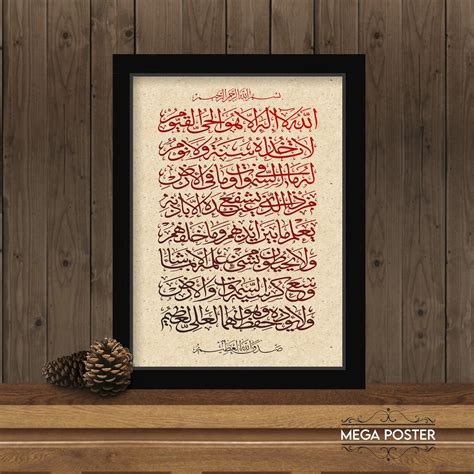 بسم الله الرحمن الرحيم
الله لا اله الا هو الحي القيوم
لا تأخذه سنة ولا نوم
له ما في السموات وما في الارض
من ذا الذي يشفع عنده الا باذنه
يعلم ما بين ايديهم وما خلفهم
ولا يحيطون بشئ من علمه الا بما شاء
وسع كرسيه السموات والارض
ولا يؤده حفظهما وهو العلي العظيم
صدق الله العظيم
MEGA POSTER